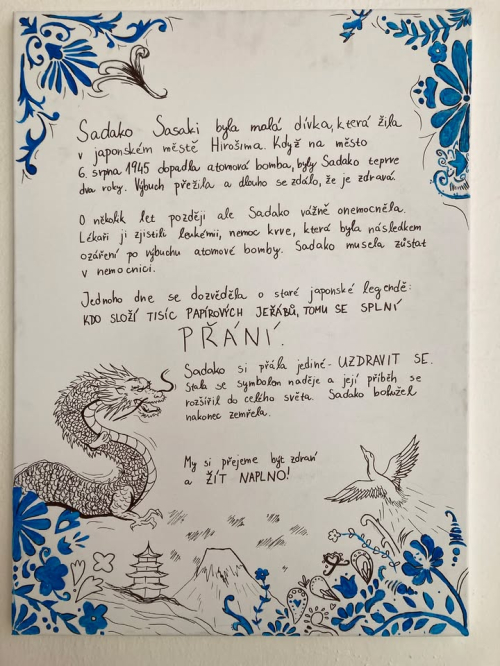 Sadako Sasaki byla malá dívka, která žila
v japonském městě Hirošima. Když na město
6. srpna 1945 dopadla atomová bomba, byly Sadako teprve
dva roky. Výbuch přežila a dlouho se zdálo, že je zdravá.
O několik let později ale Sadako vážně onemocněla.
Lékaři jí zjistili leukémii, nemoc krve, která byla následkem
ozáření po výbuchu atomové bomby. Sadako musela zůstat
v nemocnici.
Jednoho dne se dozvěděla o staré japonské legendě:
KDO SLOŽÍ TISÍC PAPÍROVÝCH JEŘÁBŮ, TOMU SE SPLNÍ
PŘÁNÍ.
Sadako si přála jediné - UZDRAVIT SE.
Stala se symbolem naděje a její příběh se
rozšířil do celého světa. Sadako bohužel
nakonec zemřela.
My si přejeme být zdraví
a ŽÍT NAPLNO!